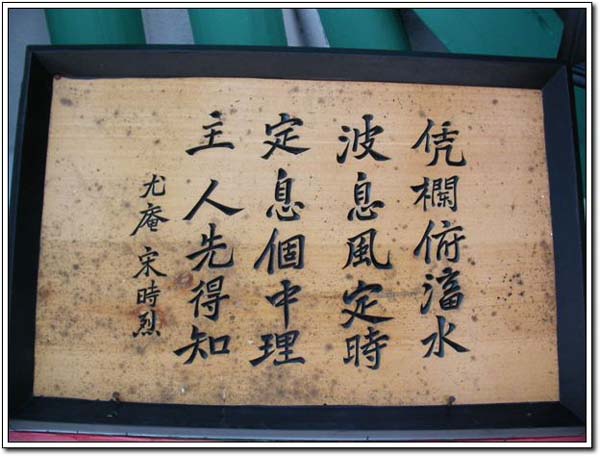 凭欄俯水
波息風定時
定息個中理
主人先得知
尤庵 宋時烈